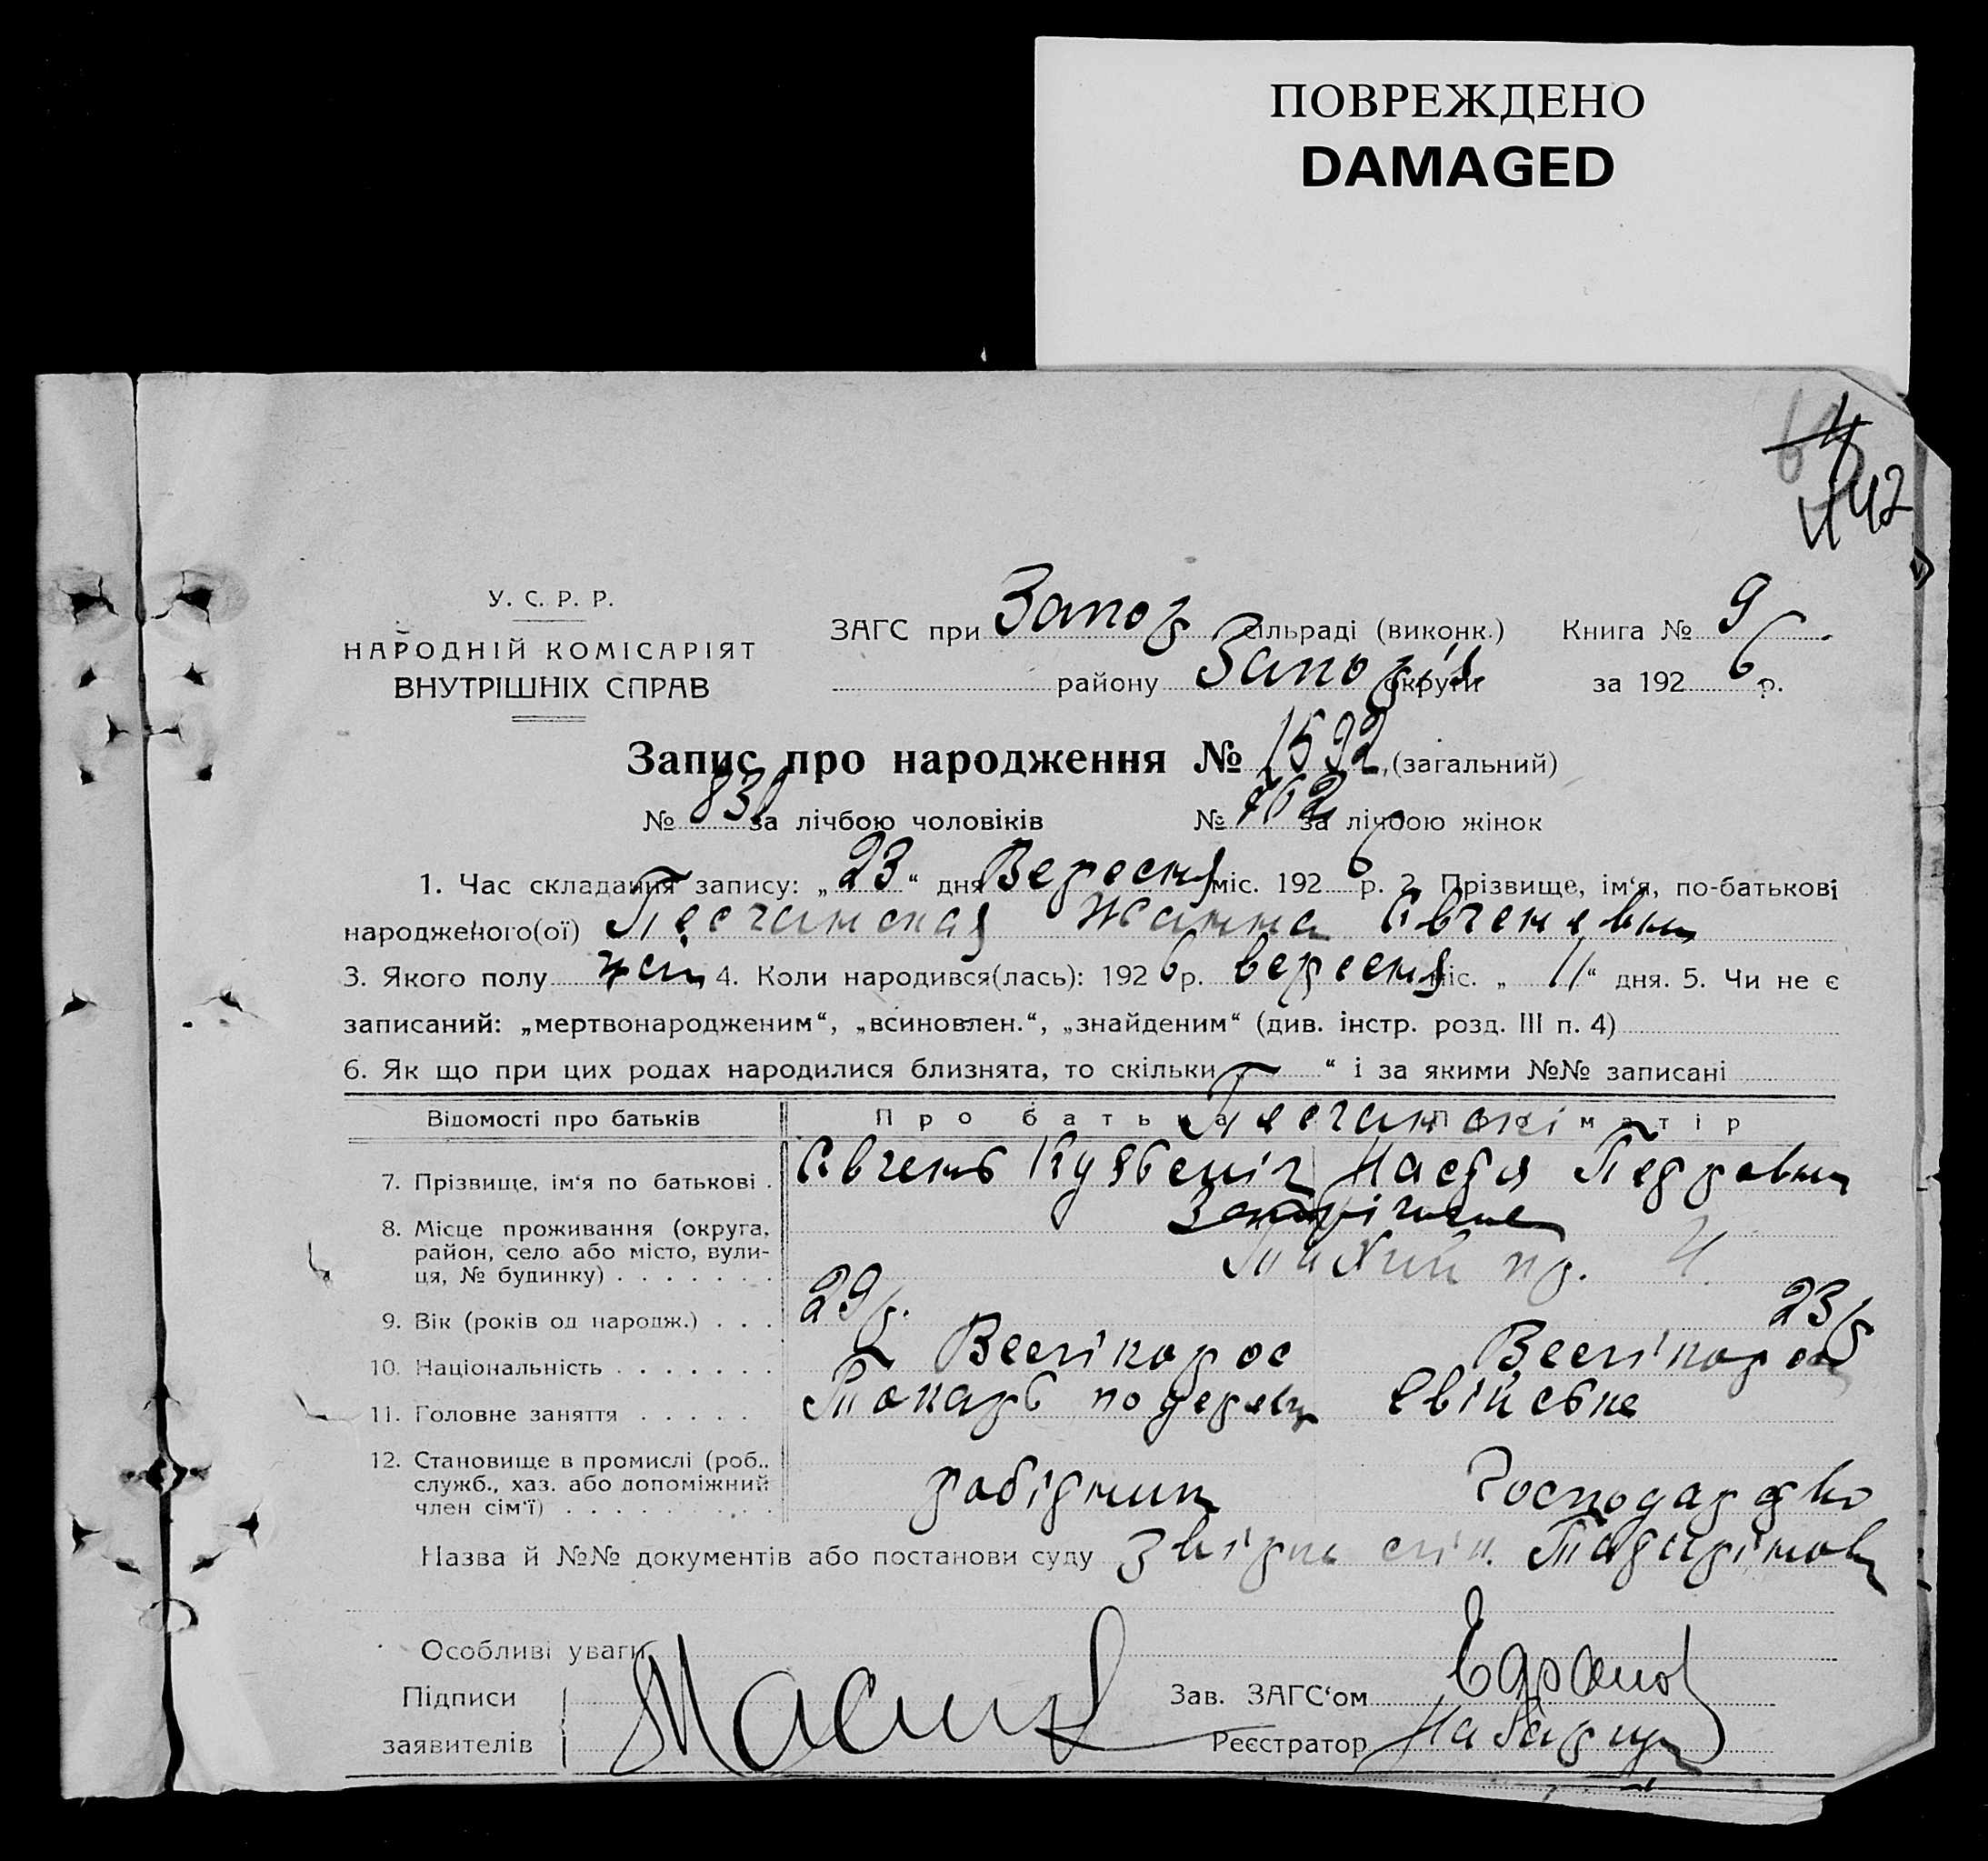 ПОВРЕЖДЕНО
DAMAGED
442
У. С. Р. Р.
НАРОДНІЙ КОМІСАРІЯТ
ВНУТРІШНІХ СПРАВ
ЗАГС при Запор сільраді (виконк.) Книга № 9
району Запор округи за 1926 р.
Запис про народження № 1592 (загальний)
№ 830 за лічбою чоловіків № 762 за лічбою жінок
1. Час складання запису: „23“ дня Вересня міс. 1926 р. 2. Прізвище, ім‘я, по-батькові
народженого(ої) Песчанская Жанна Євгенєвна
3. Якого полу жін 4. Коли народився(лась): 1926 р. вересня міс. „11“ дня. 5. Чи не є
записаний: „мертвонародженим“, „всиновлен.“, „знайденим“ (див. інстр. розд. III п. 4)
6. Як що при цих родах народилися близнята, то скільки „ “ і за якими №№ записані
Відомості про батьків Про батька Про матір
Песчанскі
7. Прізвище, ім‘я по батькові . Євгень Кузьміч Настя Петровна
8. Місце проживання (округа, Запоріжжє
район, село або місто, вули-
ця, № будинку) . . . . . . . Тихий пр. 4.
9. Вік (років од народж.) . . . 29 р. 23 р
10. Національність . . . . . . . Велікорос Велікорос
11. Головне заняття . . . . . Токарь по дереву Свійське
12. Становище в промислі (роб.,
служб., хаз. або допоміжний робітник Господарство
член сім‘ї) . . . . . . . . .
Назва й №№ документів або постанови суду
Особливі уваги
Підписи
Зав. ЗАГС‘ом
заявителів
Реєстратор